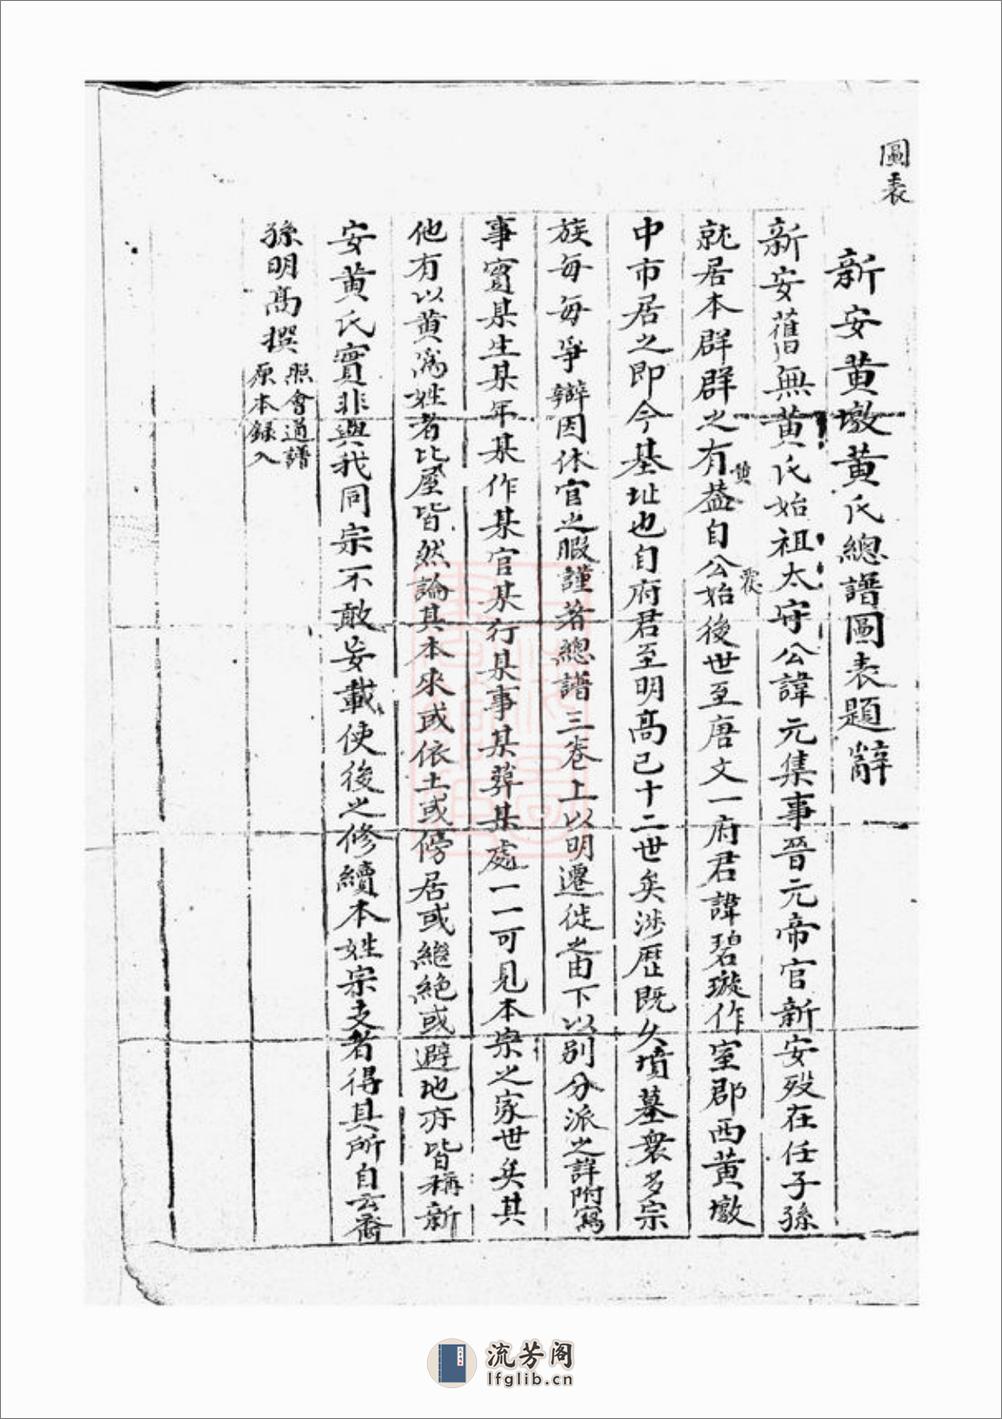 圖表
新安黄墩黄氏總譜圖表題辭
新安舊無黄氏始祖太守公諱元集事晉元帝官新安殁在任子孫
就居本群群之有黄葢自公始後世至唐文一府君諱碧璇作室郡西黄墩
中市居之即今基址也自府君至明髙已十二世矣涉歷既久墳墓衆多宗
族每每爭辯因休官之暇謹著總譜三卷上以明遷徙之由下以别分派之詳附寫
事實某生某年某作某官某行某事某葬某處一一可見本宗之家世矣其
他有以黄為姓者比屋皆然論其本來或依土或傍居或繼絶或避地亦皆稱新
安黄氏實非與我同宗不敢妄載使後之修續本姓宗支者得其所自云裔
孫明髙撰
照會通譜
原本録入
流芳阁
lfglib.cn